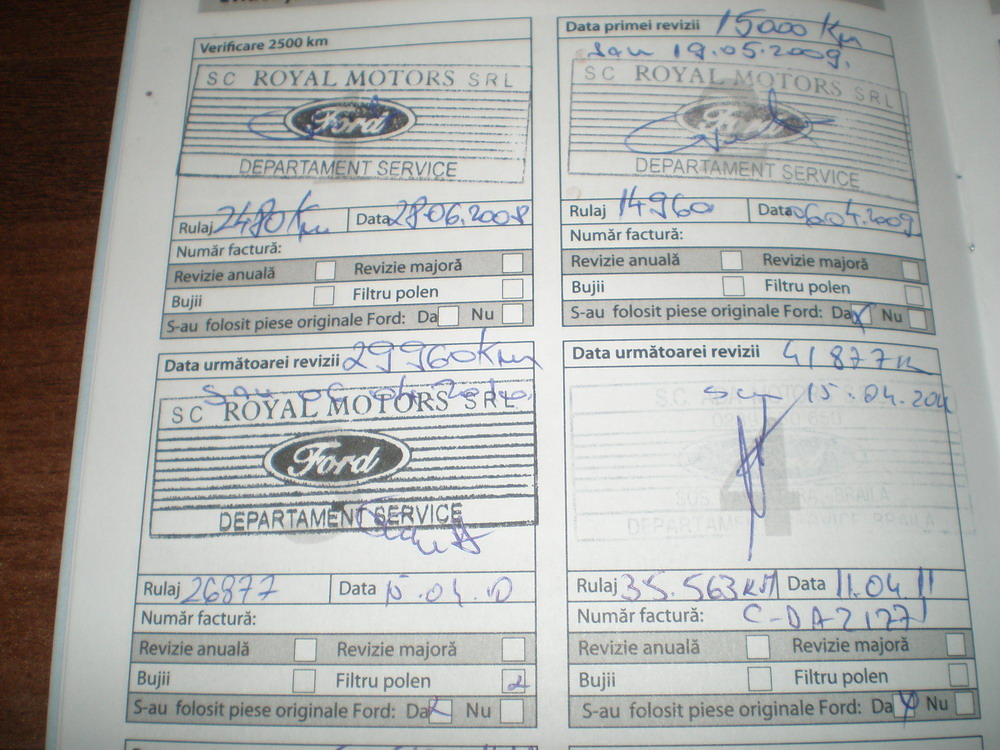 Verificare 2500 km
SC ROYAL MOTORS SRL
Ford
DEPARTAMENT SERVICE
Rulaj 2480 Km Data 28.06.2008
Număr factură:
Revizie anuală Revizie majoră
Bujii Filtru polen
S-au folosit piese originale Ford: Da Nu
Data primei revizii 15000 Km
sau 19.05.2009.
SC ROYAL MOTORS SRL
Ford
DEPARTAMENT SERVICE
Rulaj 14960 Data 06.04.2009
Număr factură:
Revizie anuală Revizie majoră
Bujii Filtru polen
S-au folosit piese originale Ford: Da Nu
Data următoarei revizii 29960 Km
sau 06.04.2010.
SC ROYAL MOTORS SRL
Ford
DEPARTAMENT SERVICE
Rulaj 26877 Data 15.04.10
Număr factură:
Revizie anuală Revizie majoră
Bujii Filtru polen
S-au folosit piese originale Ford: Da Nu
Data următoarei revizii 41877
sau 15.04.2011
4
Rulaj 35.563 KM Data 11.04.11
Număr factură: C-DA2127
Revizie anuală Revizie majoră
Bujii Filtru polen
S-au folosit piese originale Ford: Da Nu